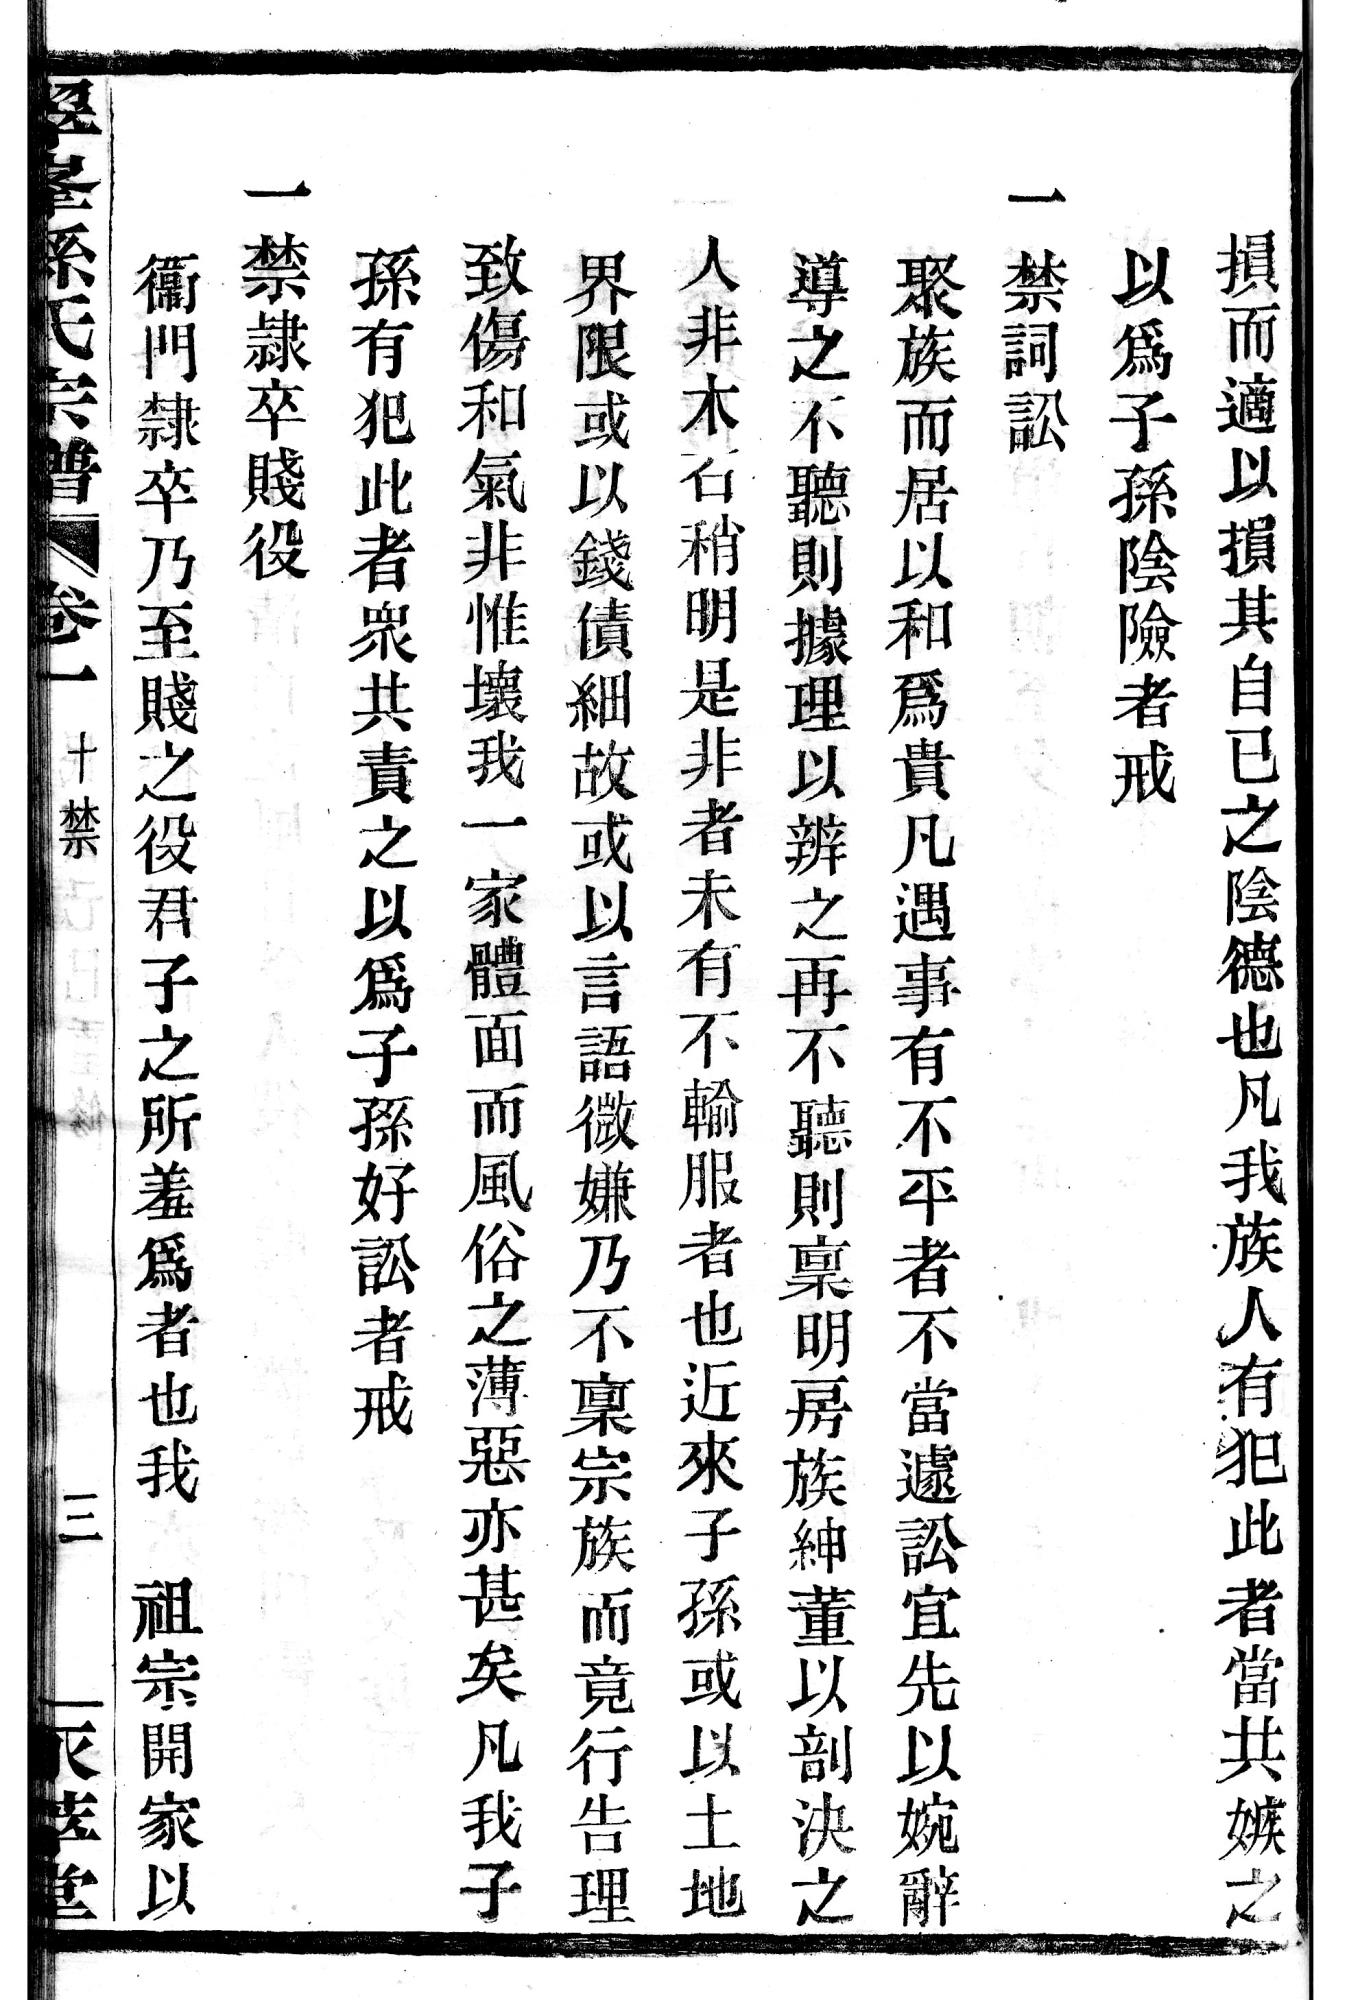 損而適以損其自已之陰德也凡我族人有犯此者當共嫉之
以爲子孫陰險者戒
一禁詞訟
聚族而居以和爲貴凡遇事有不平者不當遽訟宜先以婉辭
導之不聽則據理以辨之再不聽則稟明房族紳董以剖決之
人非木石稍明是非者未有不輸服者也近來子孫或以土地
界限或以錢債細故或以言語微嫌乃不稟宗族而竟行告理
致傷和氣非惟壞我一家體面而風俗之薄惡亦甚矣凡我子
孫有犯此者衆共責之以爲子孫好訟者戒
一禁隷卒賤役
衞門隷卒乃至賤之役君子之所羞爲者也我 祖宗開家以
孫氏宗譜 卷一 十禁 三 堂